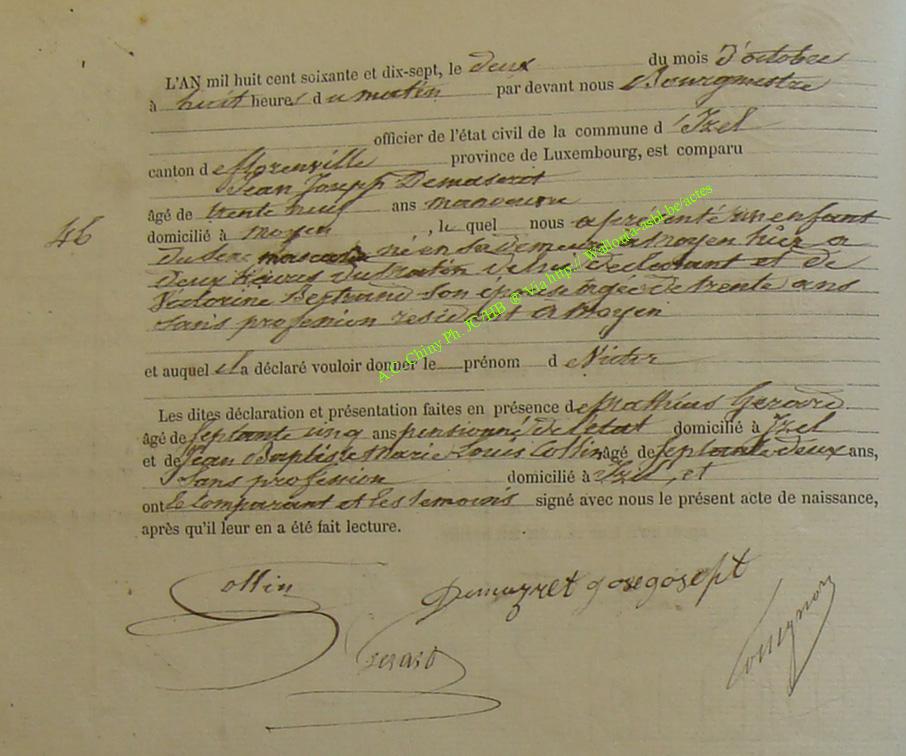 L'AN mil huit cent soixante et dix-sept, le deux du mois d'octobre
à huit heures du matin par devant nous Bourgmestre
officier de l'état civil de la commune d'Izel
canton de florenville province de Luxembourg, est comparu
Jean Joseph
âgé de trente huit ans manoeuvre
46
domicilié à Moyen, le quel nous a présenté un enfant
du sexe masculin né en sa demeure à Moyen hier a
deux heures du matin de lui déclarant et de
Victorine Bertrand son épouse agée de trente ans
sans profession residant a Moyen
et auquel il a déclaré vouloir donner le prénom de Victor
Les dites déclaration et présentation faites en présence de Mathias Gerard
âgé de septante cinq ans pensionné de l'état domicilié à Izel
et de Jean Baptiste Marie Louis Collin âgé de septante deux ans,
sans profession domicilié à Izel, et
ont le comparant et les temoins signé avec nous le présent acte de naissance,
après qu'il leur en a été fait lecture.
A.C. Chiny Ph. JC HB @ Via http://Wallonia-asbl.be/actes
Collin
Demazret gosegosept
Gerard